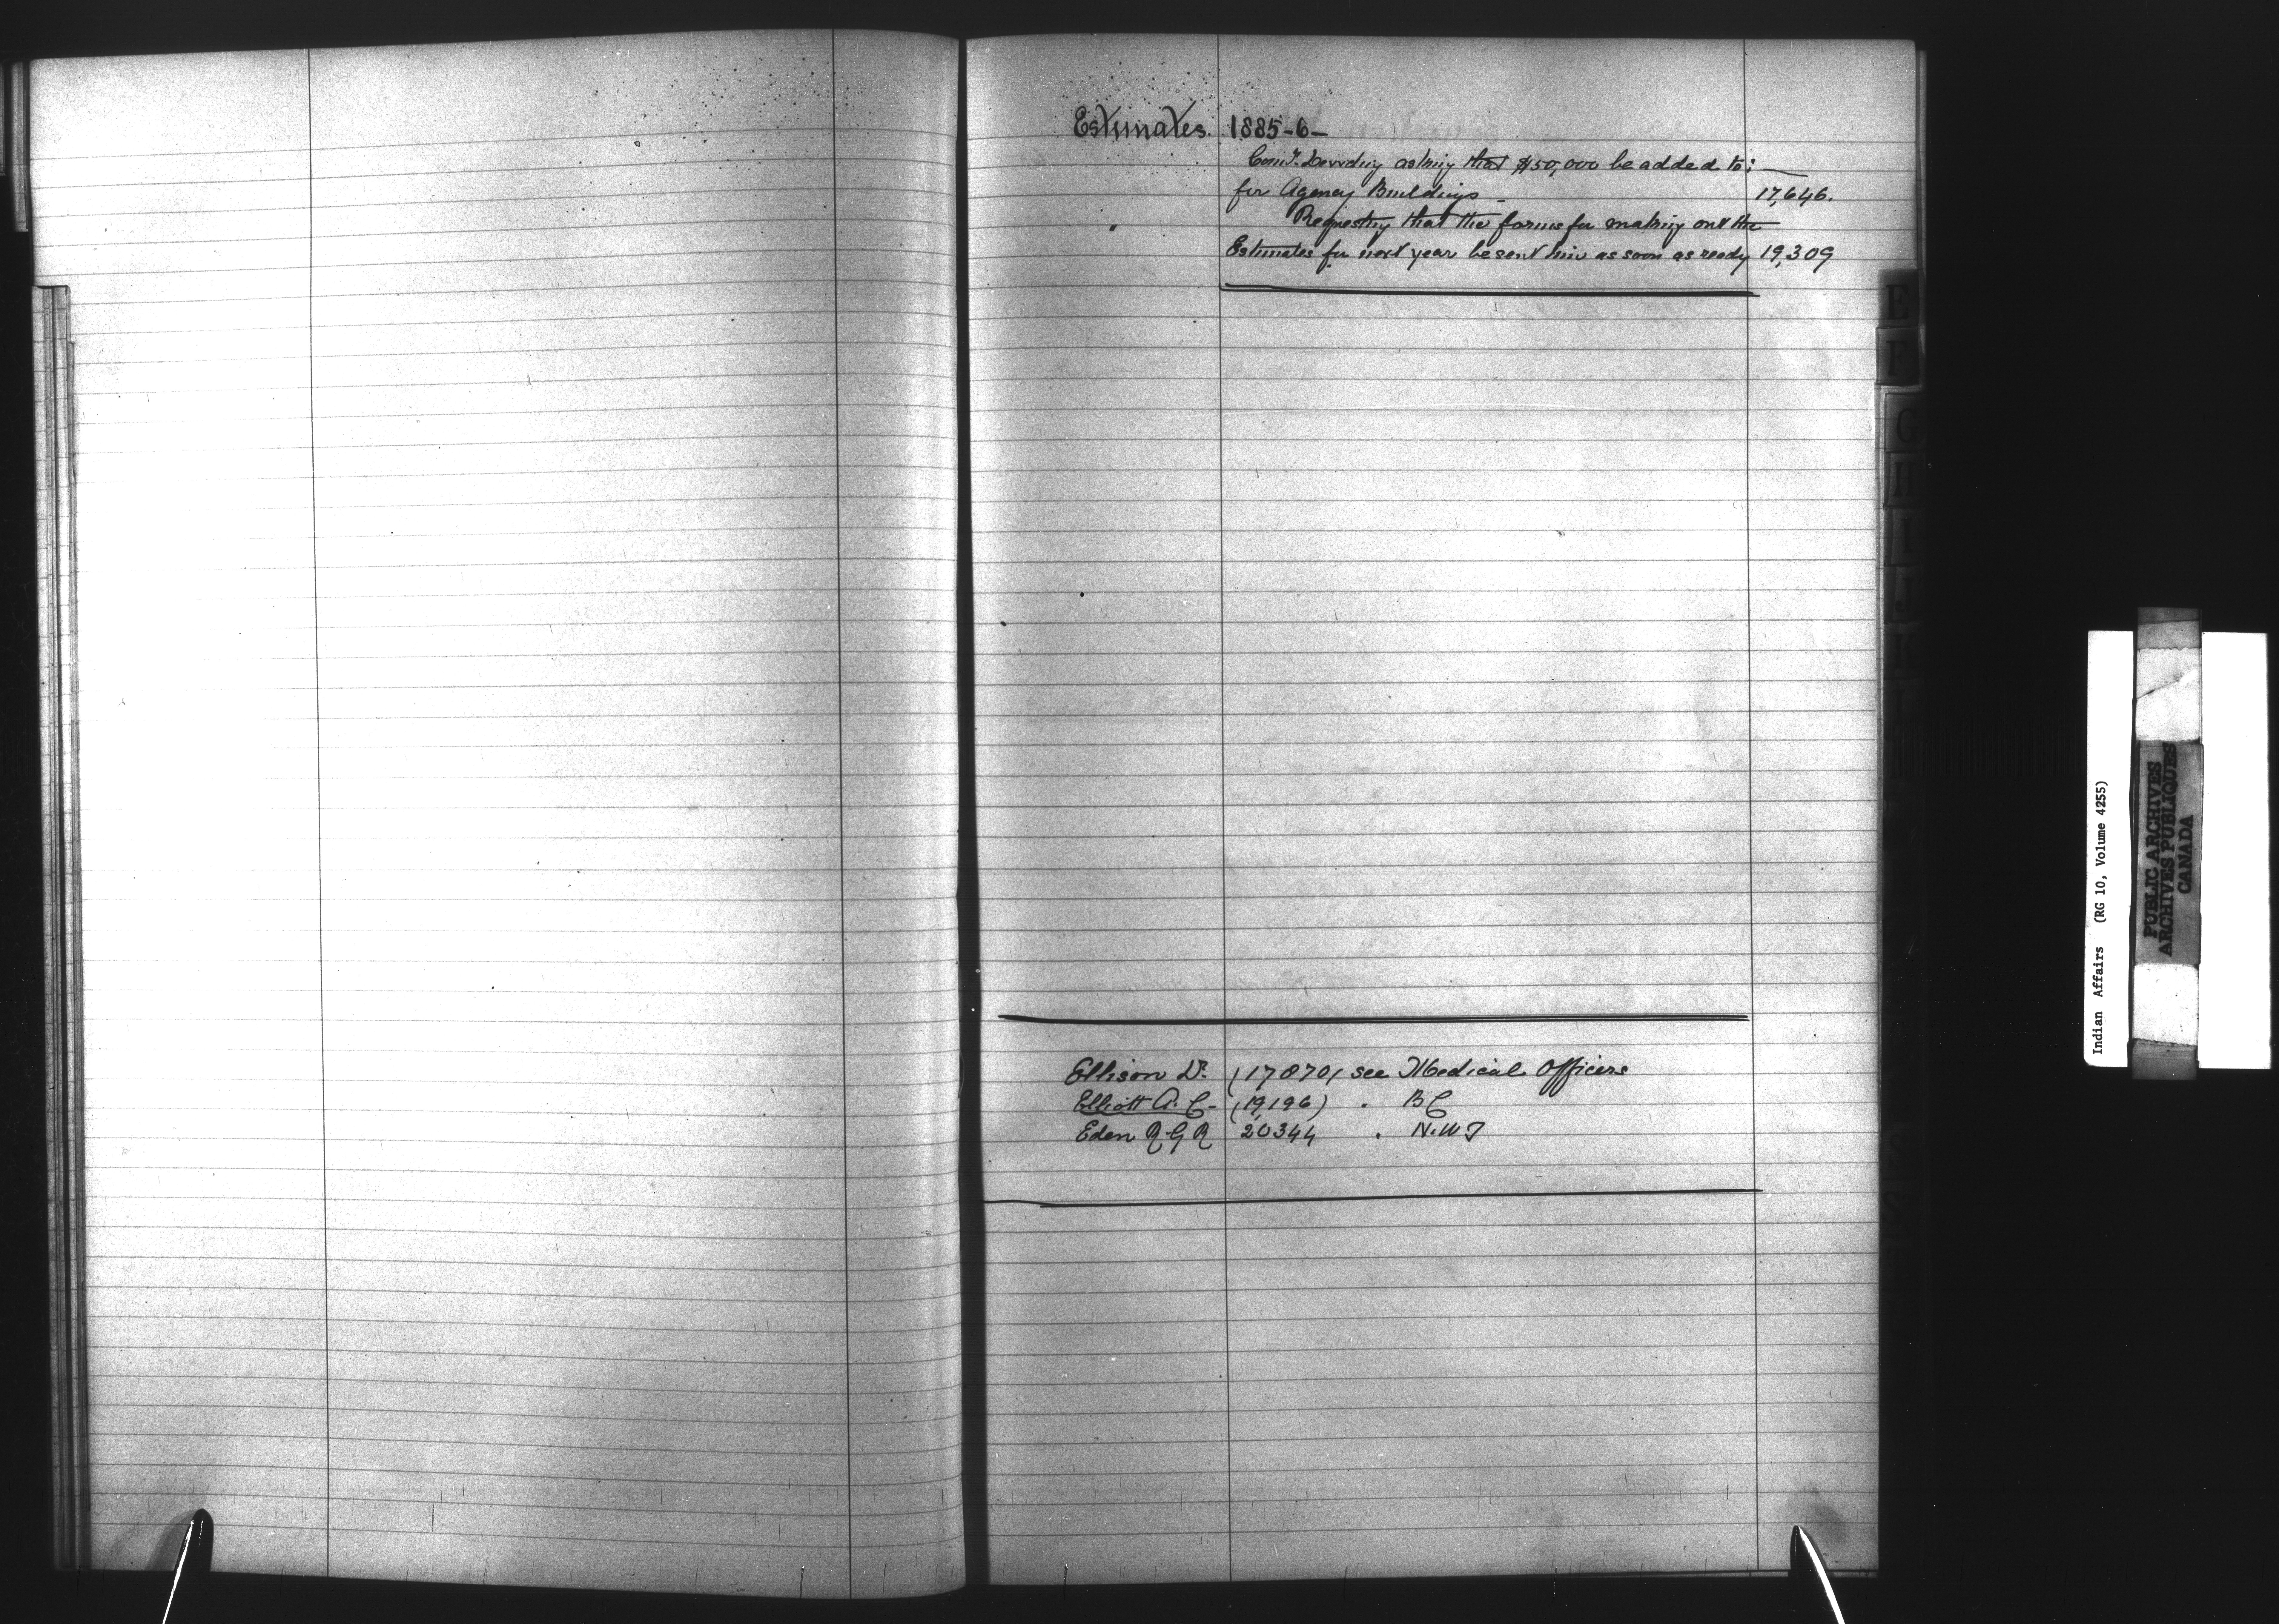 Estimates. 1885-6-
Comr. Dewdney asking that $50,000 be added to:
for Agency Buildings - 17,646.
" Requesting that the forms for making out the
Estimates for next year be sent him as soon as ready 19,309
Ellison Dr. (17870) see Medical Officers
Elliott A. C. (19,196) " BC
Eden R G R 20344 " N.W.T
E
F
G
H
I
J
K
Indian Affairs (RG 10, Volume 4255)
PUBLIC ARCHIVES
ARCHIVES PUBLIQUES
CANADA